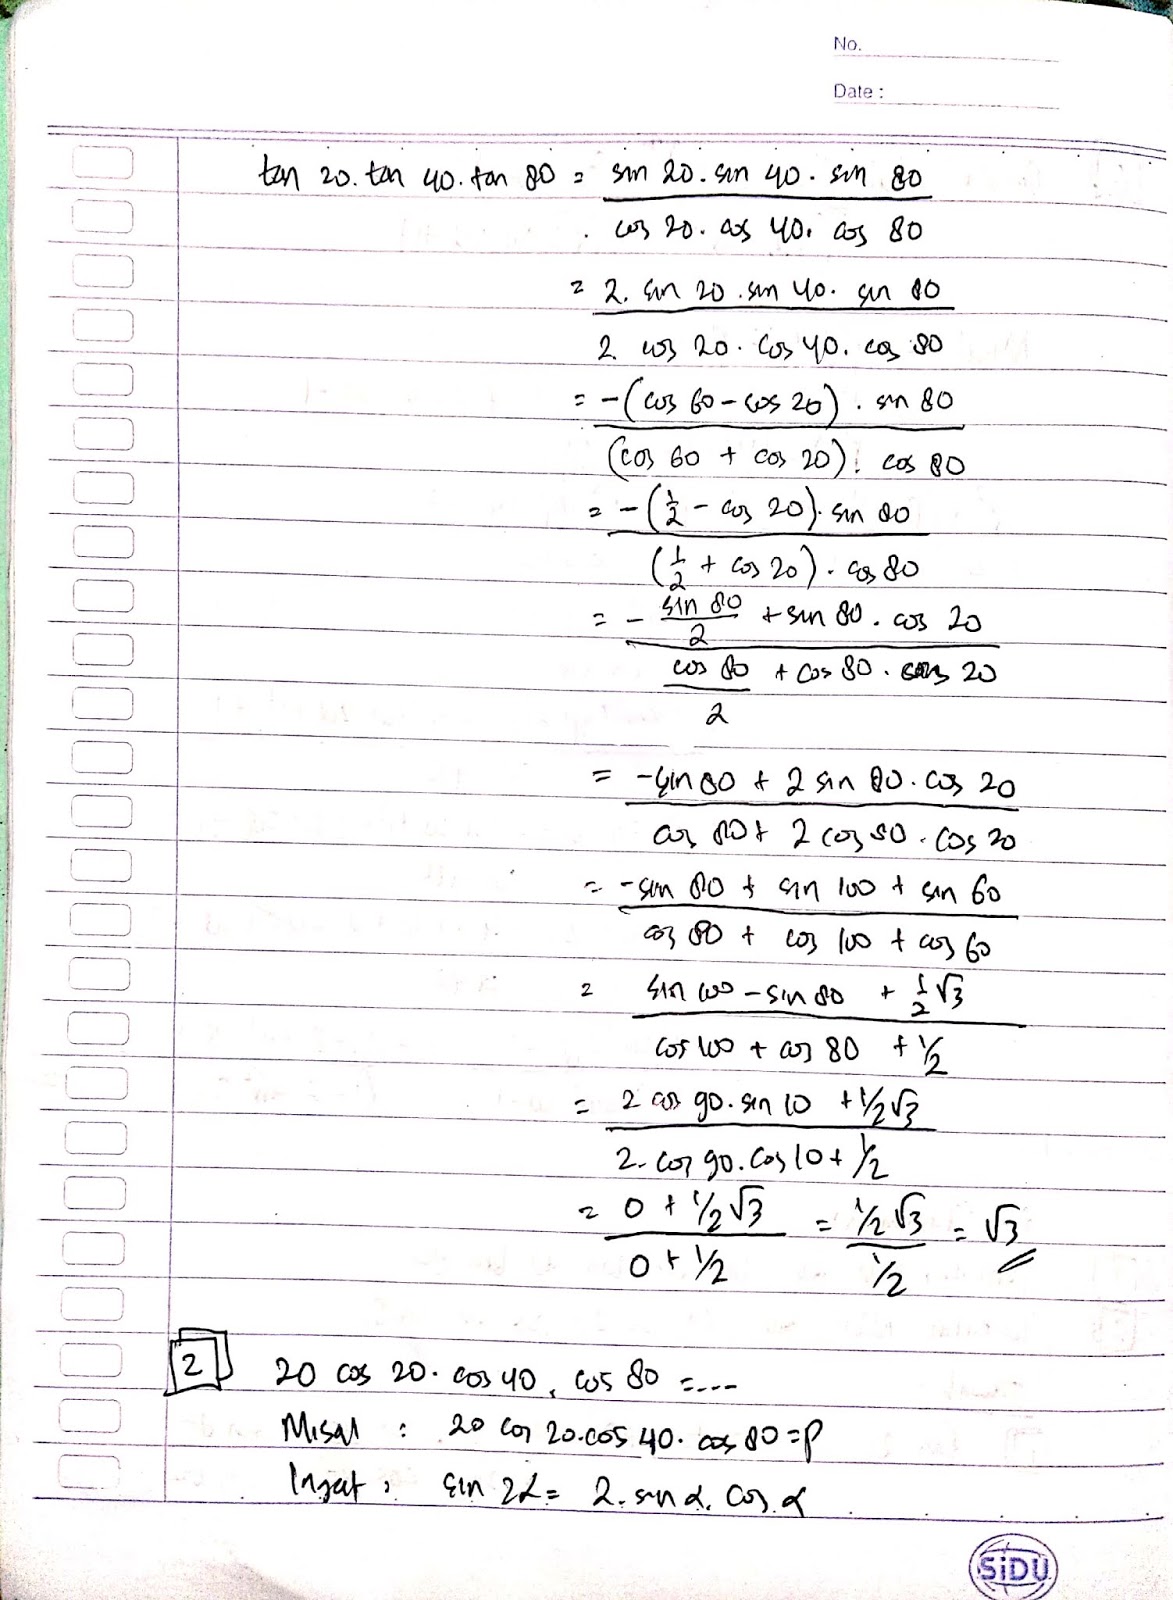 No.
Date :
tan 20. tan 40. tan 80 = sin 20. sin 40. sin 80
cos 20. cos 40. cos 80
= 2. sin 20 . sin 40. sin 80
2 cos 20. cos 40. cos 80
= -(cos 60 - cos 20) . sin 80
(cos 60 + cos 20). cos 80
= -(1/2 - cos 20). sin 80
(1/2 + cos 20). cos 80
= - sin 80/2 + sin 80. cos 20
cos 80/2 + cos 80. cos 20
= -sin 80 + 2 sin 80. cos 20
cos 80 + 2 cos 80. cos 20
= -sin 80 + sin 100 + sin 60
cos 80 + cos 100 + cos 60
= sin 100 - sin 80 + 1/2 √3
cos 100 + cos 80 + 1/2
= 2 cos 90. sin 10 + 1/2 √3
2. cos 90. cos 10 + 1/2
= 0 + 1/2 √3 = 1/2 √3 = √3
0 + 1/2 1/2
2 20 cos 20. cos 40. cos 80 = ....
Misal : 20 cos 20. cos 40. cos 80 = P
Ingat : sin 2α = 2. sin α. cos α
SiDU